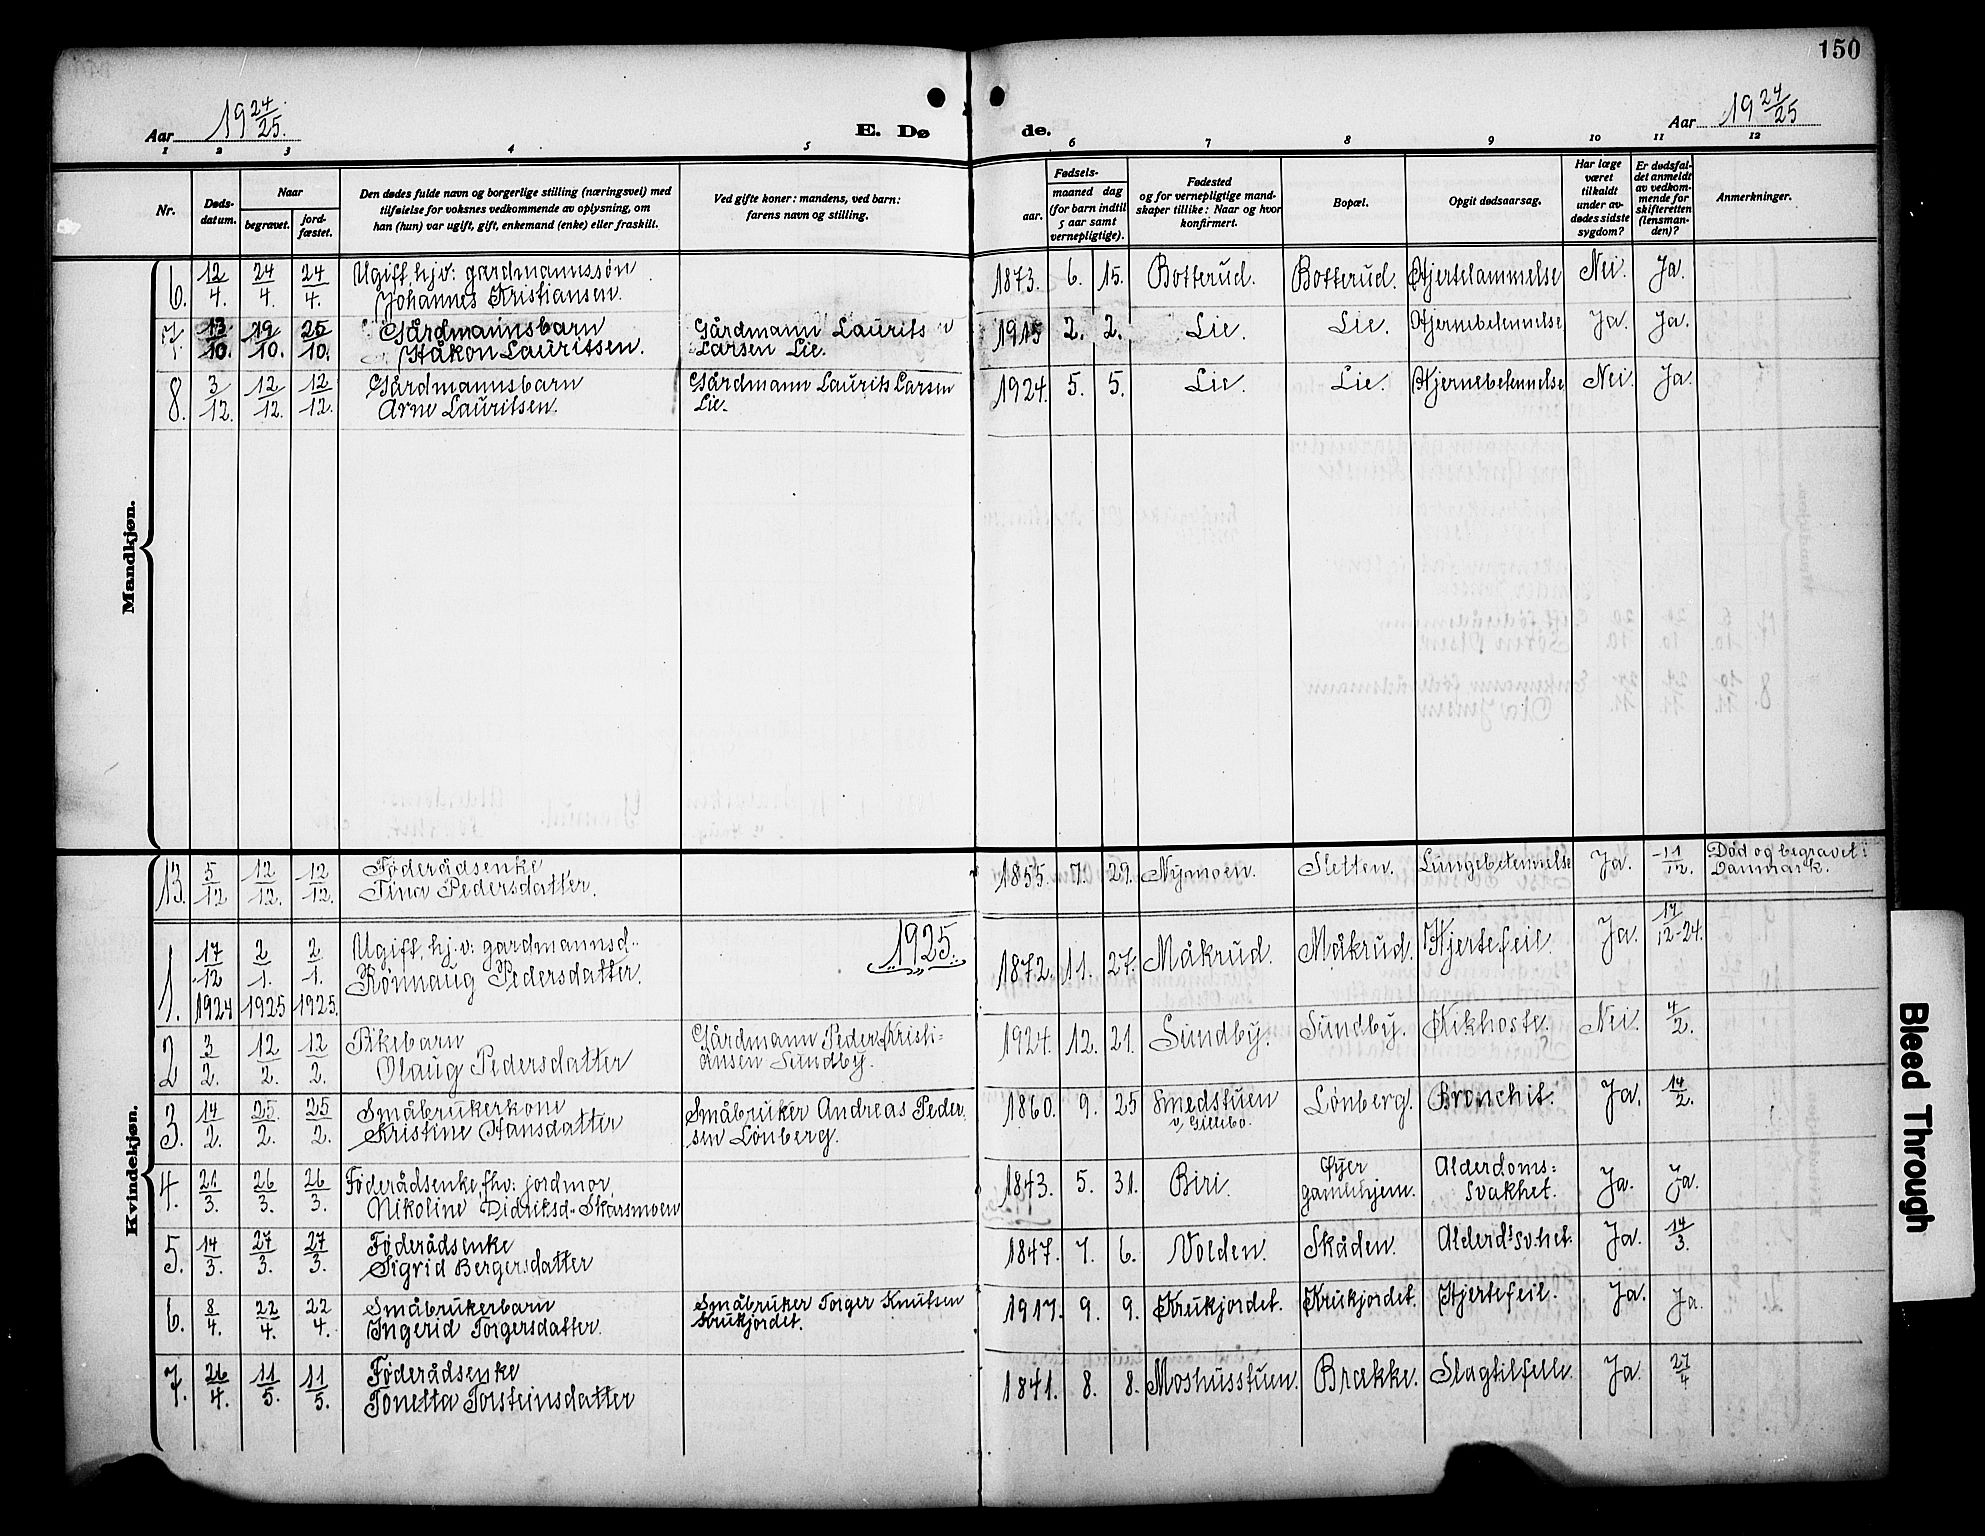 150
Aar 19 24/25.
E. Døde.
Aar 19 24/25
1 2 3 4 5 6 7 8 9 10 11 12
Nr.
Døds-
datum.
Naar
begravet.
jord-
fæstet.
Den dødes fulde navn og borgerlige stilling (næringsvei) med
tilføielse for voksnes vedkommende av oplysning, om
han (hun) var ugift, gift, enkemand (enke) eller fraskilt.
Ved gifte koner: mandens, ved barn:
farens navn og stilling.
Fødsels-
aar.
maaned dag
(for barn indtil
5 aar samt
vernepligtige).
Fødested
og for vernepligtige mand-
skaper tillike: Naar og hvor
konfirmert.
Bopæl.
Opgit dødsaarsag.
Har læge
været
tilkaldt
under av-
dødes sidste
sygdom?
Er dødsfal-
det anmeldt
av vedkom-
mende for
skifteretten
(lensman-
den)?
Anmerkninger.
Mandkjøn.
6. 12/4. 24/4. 24/4. Ugift, hjv: gardmannssøn
Johannes Kristiansen. 1873. 6. 15. Botterud. Botterud. Hjertelammelse Nei. Ja.
7. 13/10. 19/10. 25/10. Gårdmannsbarn
Håkon Lauritssen. Gårdmann Laurits
Larsen Lie. 1915 2. 2. Lie. Lie. Hjernebetennelse Ja. Ja.
8. 3/12. 12/12. 12/12. Gårdmannsbarn
Arne Lauritsen. Gårdmann Laurits Larsen
Lie. 1924. 5. 5. Lie. Lie. Hjernebetennelse Nei. Ja.
Kvindekjøn.
13. 5/12 12/12. 12/12. Føderådsenke
Tina Pedersdatter. 1855. 7. 29. Nymoen. Sletten. Lungebetennelse Ja. 11/12. Død og begravet i
Danmark.
1925.
1. 17/12 1924 2/1. 1925 2/1. 1925. Ugift, hj.v: gardmannsd..
Rønnaug Pedersdatter. 1872. 11. 27. Måkrud. Måkrud. Hjertefeil. Ja. 17/12-24.
2 3/2. 12/2. 12/2. Pikebarn
Olaug Pedersdatter Gårdmann Peder Kristi-
ansen Sundby. 1924. 12. 21. Sundby. Sundby. Kikhoste. Nei. 4/2.
3. 14/2. 25/2. 25/2. Småbrukerkone
Kristine Hansdatter Småbruker Andreas Peder
sen Lønberg. 1860. 9. 25 Smedstuen
v, Gillebo. Lønberg. Bronchit. Ja. 14/2.
4. 21/3. 26/3. 26/3. Føderådsenke, fhv: jordmor
Nikoline Didriksd. Skarsmoen 1843. 5. 31. Biri. Øyer
gamlehjem. Alderdoms:
svakhet. Ja. Ja.
5. 14/3. 27/3. 27/3. Føderådsenke
Sigrid Bergersdatter 1847. 7. 6. Volden. Skåden. Alderds sv.het. Ja. 14/3.
6. 8/4. 22/4. 22/4. Småbrukerbarn
Ingerid Torgersdatter. Småbruker Torger Knutsen
Krukjordet. 1917. 9. 9. Krukjordet. Krukjordet. Hjertefeil. Ja. Ja.
7. 26/4. 11/5. 11/5. Føderådsenke
Tonetta Torsteinsdatter 1841. 8. 8. Moshusstuen. Brække. Slagtilfelle. Ja. 27/4
Bleed Through